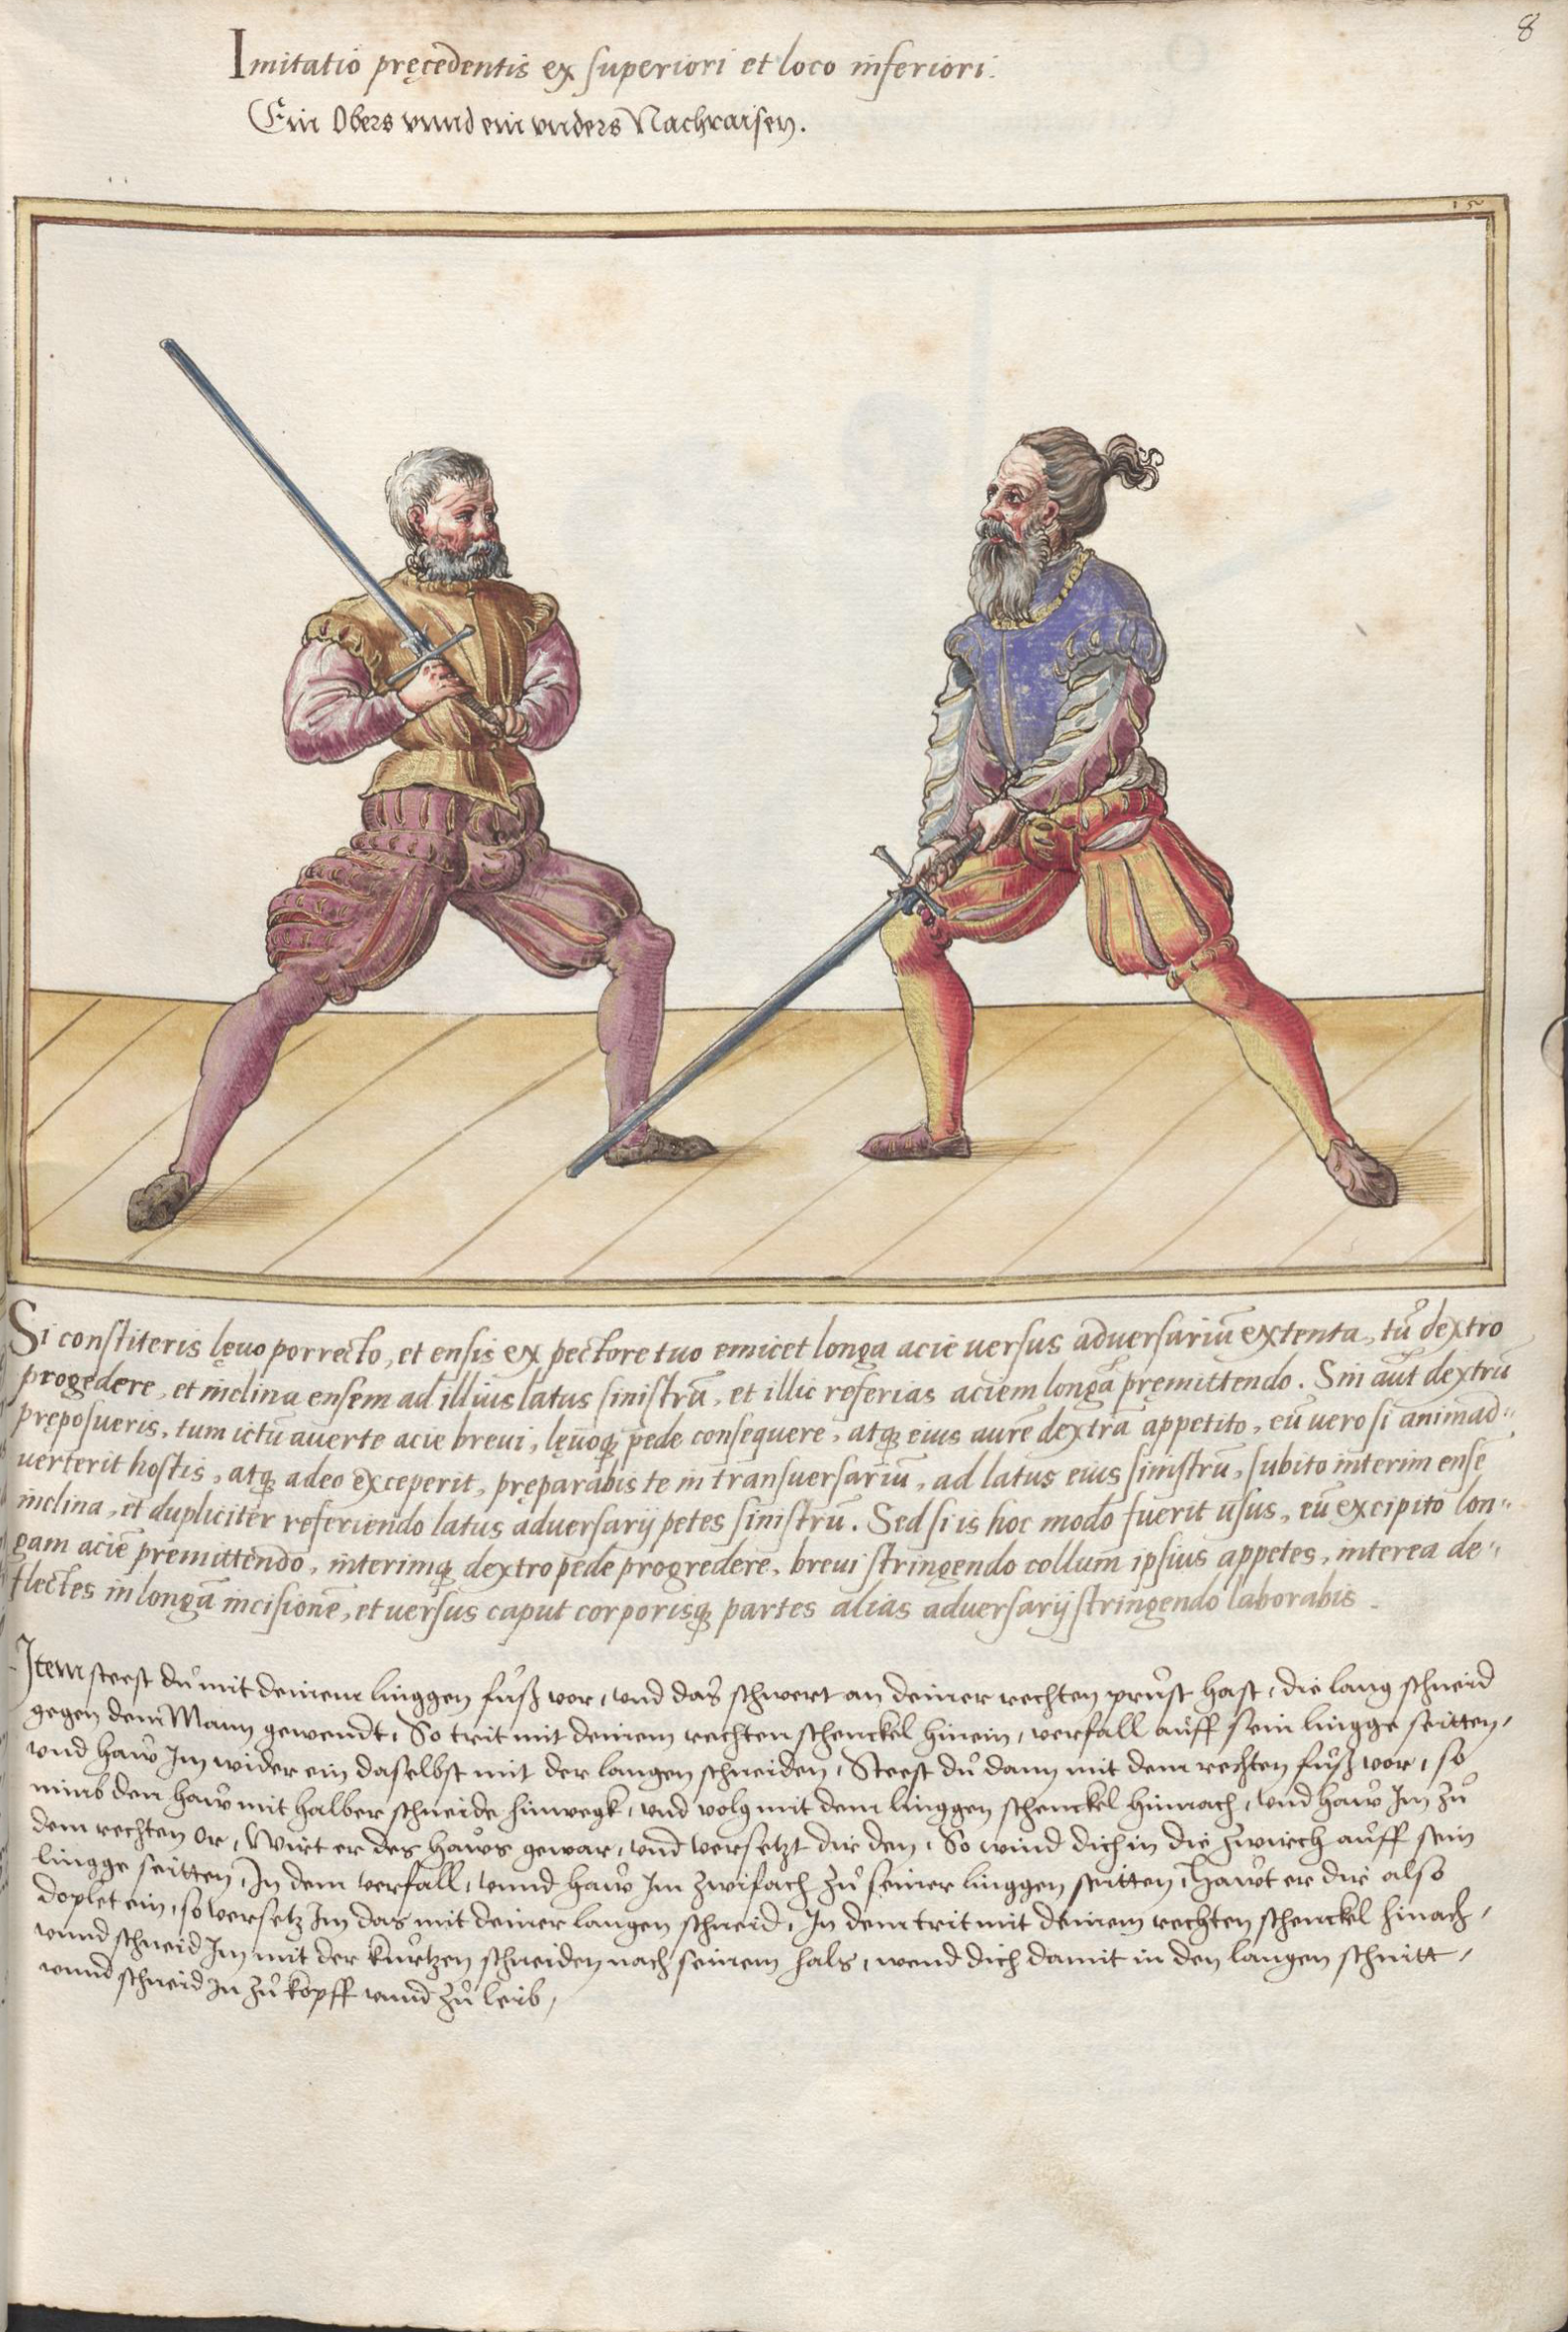 8
Imitatio pręcedentis ex superiori et loco inferiori.
Ein Obers vnnd ein vnders Nachraisen.
15
Si constiteris lęuo porrecto, et ensis ex pectore tuo emicet longa acie uersus aduersariū extenta, tū dextro
progedere, et inclina ensem ad illius latus sinistrū, et illic referias aciem longā pręmittendo. Sin aūt dextrū
pręposueris, tum ictū auerte acie breui, lęuoq; pede consequere, atq; eius aurē dextrā appetito, eū uero si animad¨
uerterit hostis, atq; adeo exceperit, pręparabis te in transuersariū, ad latus eius sinistrū, subito interim ense
inclina, et dupliciter referiendo latus aduersarij petes sinistrū. Sed si is hoc modo fuerit usus, eū excipito lon¨
gam aciē premittendo, interimq; dextro pede progredere, breui stringendo collum ipsius appetes, interea de¨
flectes in longā incisionē, et uersus caput corporisq; partes alias aduersarij stringendo laborabis.
Item steest dů mit deinem linggen fůß vor, vnd das schwert an deiner rechten průst hast, die lang schneid
gegen dem Mann gewendt, So trit mit deinem rechten schenckel hinein, verfall aůff sein lingge seitten,
vnd haw Im wider ein daselbst mit der langen schneiden, Steest dů dann mit dem rechten fůß vor, so
nimb den haw mit halber schneide hinwegk, vnd volg mit dem linggen schenckel hinnach, vnd haw Im zů
dem rechten Or, Wirt er des haws gewar, vnd versetzt dir den, So wind dich in die zwirch aůff sein
lingge seitten, In dem verfall, vnnd haw Im zwifach zů seiner linggen seitten, Hawt er dir also
doplet ein, so versetz Im das mit deiner langen schneid, In dem trit mit deinem rechten schenckel hinach,
vnnd schneid Im mit der kůrtzen schneiden nach seinem hals, wend dich damit in den langen schnitt,
vnnd schneid In zů kopff vnnd zů leib,